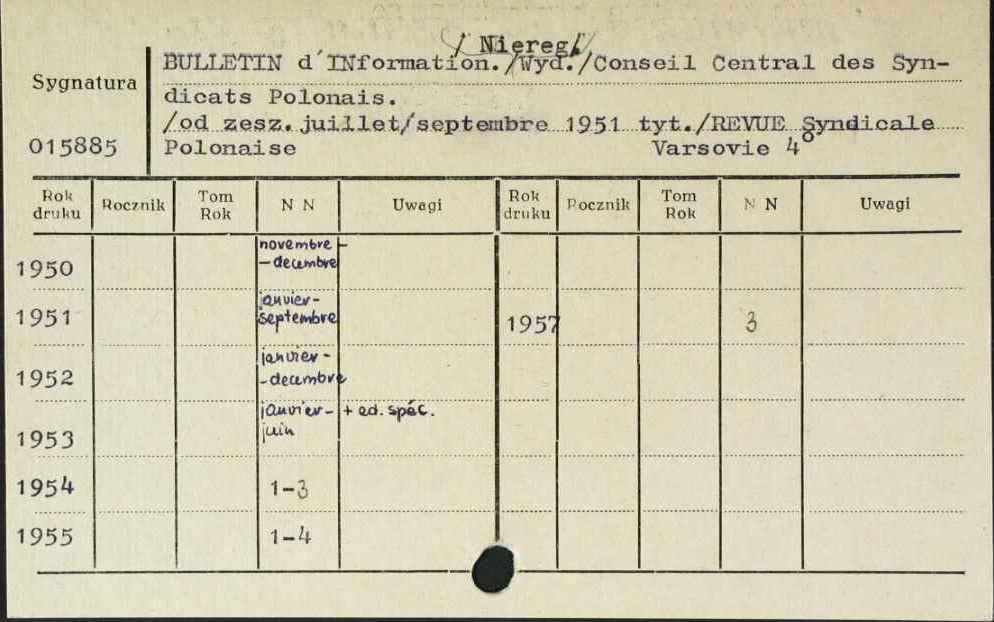 /Niereg./
BULLETIN d'INformation./Wyd./Conseil Central des Syn-
Sygnatura
dicats Polonais.
/od zesz.juillet/septembre 1951 tyt./REVUE Syndicale
015885
Polonaise Varsovie 4°
Rok druku Rocznik Tom Rok N N Uwagi Rok druku Rocznik Tom Rok N N Uwagi
1950 novembre -
- decembre
1951 janvier-
septembre
1957 3
1952 janvier -
- decembre
1953 janvier- + ed. spéc.
juin
1954 1-3
1955 1-4